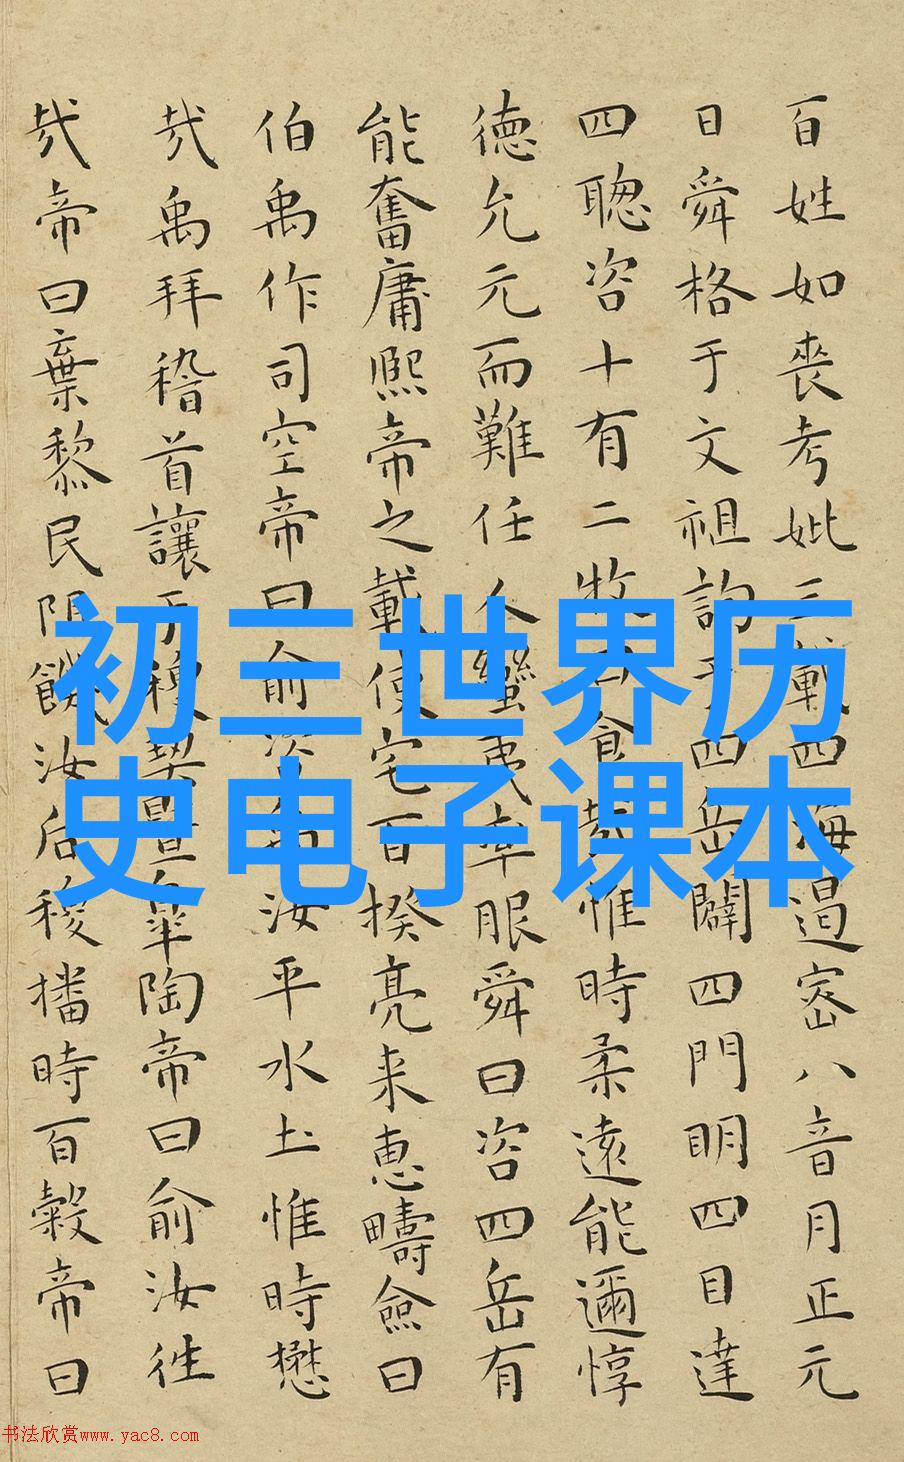 百姓如喪考妣三載四海遏密八音月正元
日舜格于文祖詢于四岳闢四門明四目達
四聰咨十有二牧曰食哉惟時柔遠能邇惇
德允元而難任人蠻夷率服舜曰咨四岳有
能奮庸熙帝之載使宅百揆亮采惠疇僉曰
伯禹作司空帝曰俞咨禹汝平水土惟時懋
哉禹拜稽首讓于稷契暨皋陶帝曰俞汝往
哉帝曰棄黎民阻饑汝后稷播時百穀帝曰
初三世界历
史电子课本
书法欣赏www.yac8.com